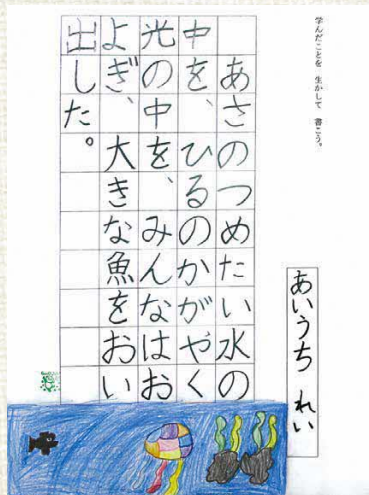 学んだことを 生かして 書こう。
あいうち れい
あさのつめたい水の
中を、ひるのかがやく
光の中を、みんなはお
よぎ、大きな魚をおい
出した。